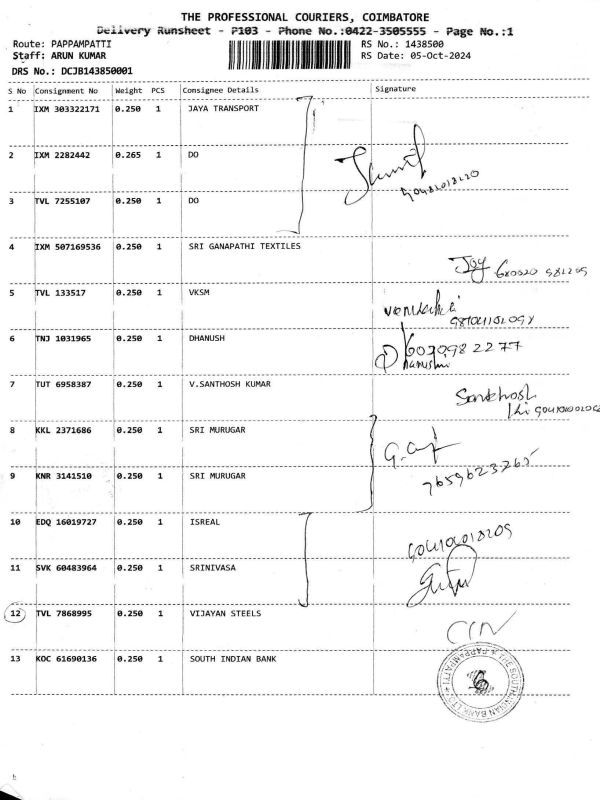 THE PROFESSIONAL COURIERS, COIMBATORE
Delivery Runsheet - P103 - Phone No.:0422-3505555 - Page No.:1
Route: PAPPAMPATTI RS No.: 1438500
Staff: ARUN KUMAR RS Date: 05-Oct-2024
DRS No.: DCJB143850001
S No Consignment No Weight PCS Consignee Details Signature
1 IXM 303322171 0.250 1 JAYA TRANSPORT
2 IXM 2282442 0.265 1 DO
3 TVL 7255107 0.250 1 DO
4 IXM 507169536 0.250 1 SRI GANAPATHI TEXTILES
Joy
5 TVL 133517 0.250 1 VKSM
6 TNJ 1031965 0.250 1 DHANUSH
7 TUT 6958387 0.250 1 V.SANTHOSH KUMAR
Santhosh
8 KKL 2371686 0.250 1 SRI MURUGAR
9 KNR 3141510 0.250 1 SRI MURUGAR
7659623265
10 EDQ 16019727 0.250 1 ISREAL
11 SVK 60483964 0.250 1 SRINIVASA
12 TVL 7868995 0.250 1 VIJAYAN STEELS
13 KOC 61690136 0.250 1 SOUTH INDIAN BANK
THE SOUTH INDIAN BANK LTD
PAPPAMPATTI